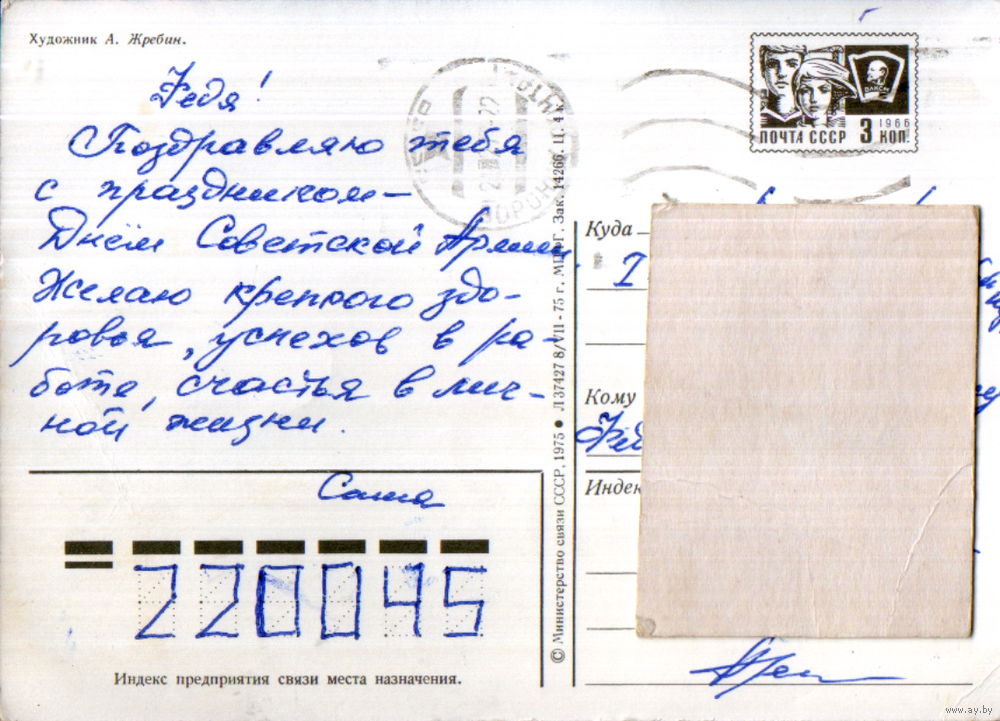 Художник А. Жребин.
Федя!
Поздравляю тебя
с праздником —
Днём Советской Армии.
Желаю крепкого здо-
ровья, успехов в ра-
боте, счастья в лич-
ной жизни.
Саша
220045
Индекс предприятия связи места назначения.
© Министерство связи СССР, 1975 ● Л 37427 8/VII - 75 г. МПФГ. Зак. 14266. Ц. 4
ПОЧТА СССР 3 КОП.
1966
ВЛКСМ
Куда
Кому
Индек
www.ay.by